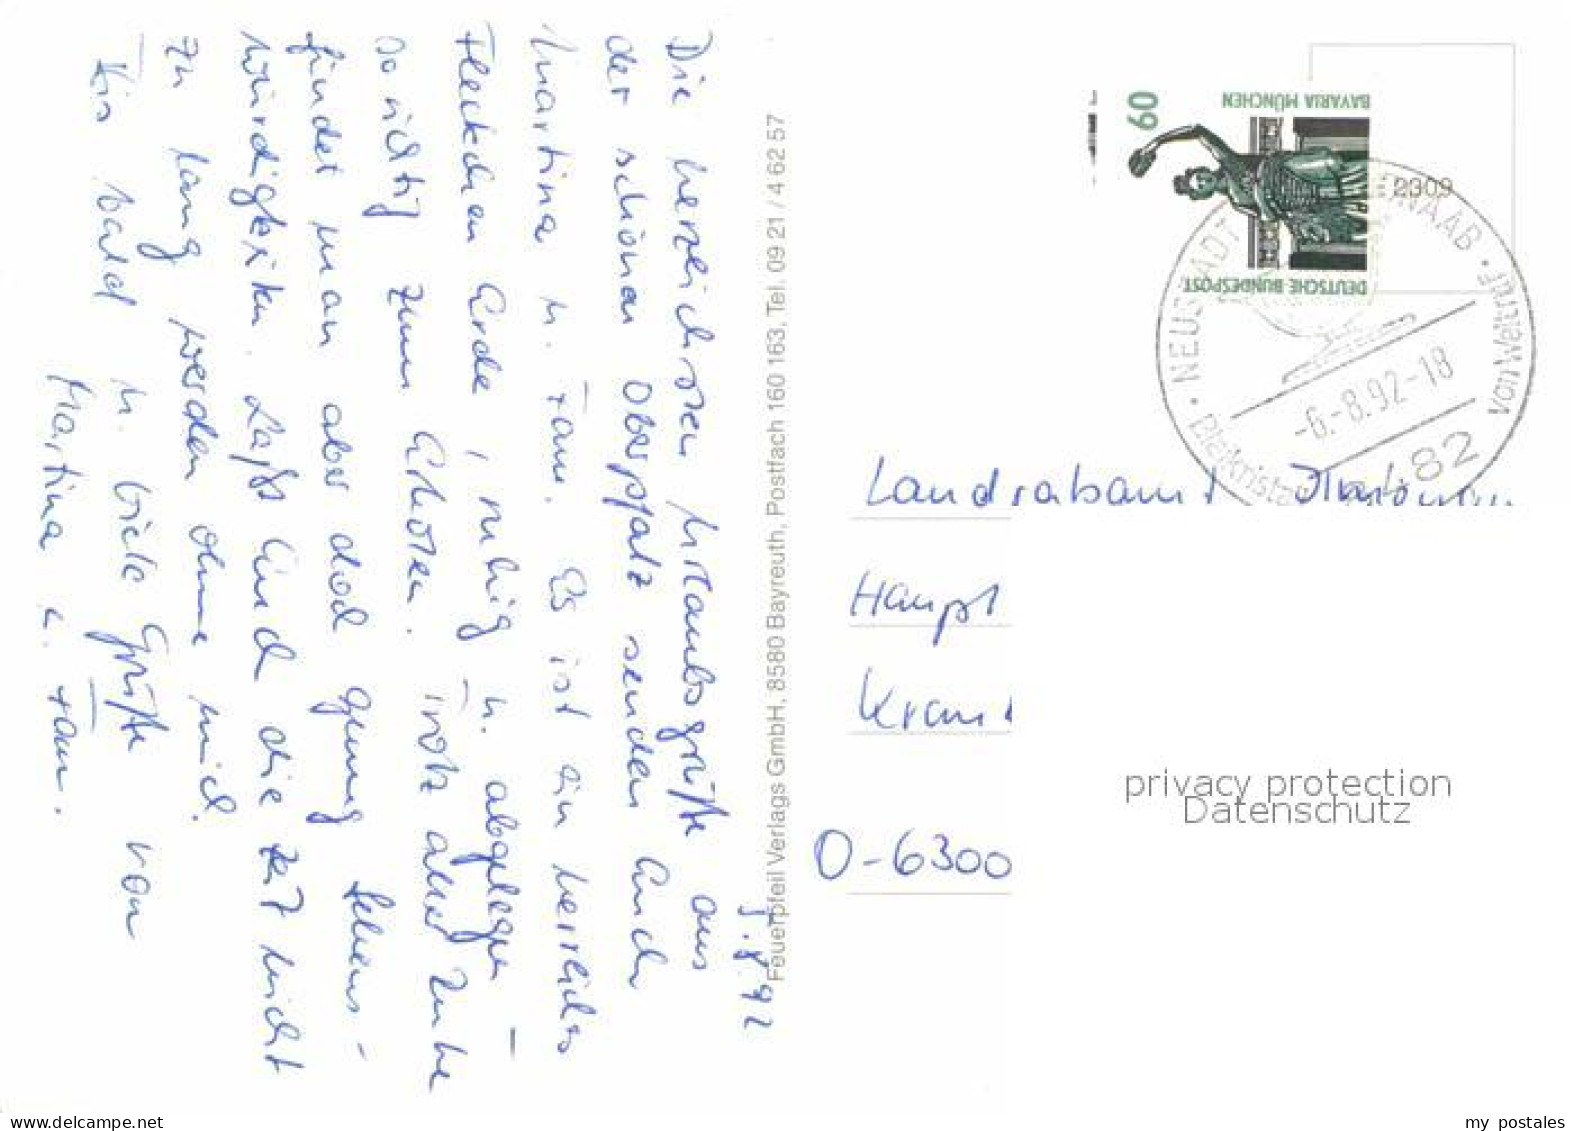 5.8.92
Die herzlichsten Urlaubsgrüße aus
der schönen Oberpfalz senden Euch
Martina u. Fam. Es ist ein herrliches
Fleckchen Erde, ruhig u. abgelegen –
so richtig zum Erholen. Trotz aller Ruhe
findet man aber doch genug Sehens-
würdigkeiten. Laßt Euch die Zeit nicht
zu lang werden ohne mich.
Bis bald u. viele Grüße von
Martina u. Fam.
Feuerpfeil Verlags GmbH, 8580 Bayreuth, Postfach 160 163, Tel. 09 21 / 4 62 57
60
BAYARIA MÜNCHEN
DEUTSCHE BUNDESPOST
2309
NEUSTADT WAAB
-6.-8.92-18
Bleikristall von Weltruf
482
Landratsamt Ilmenau
Haupt
Krank
O-6300
privacy protection
Datenschutz
my postales